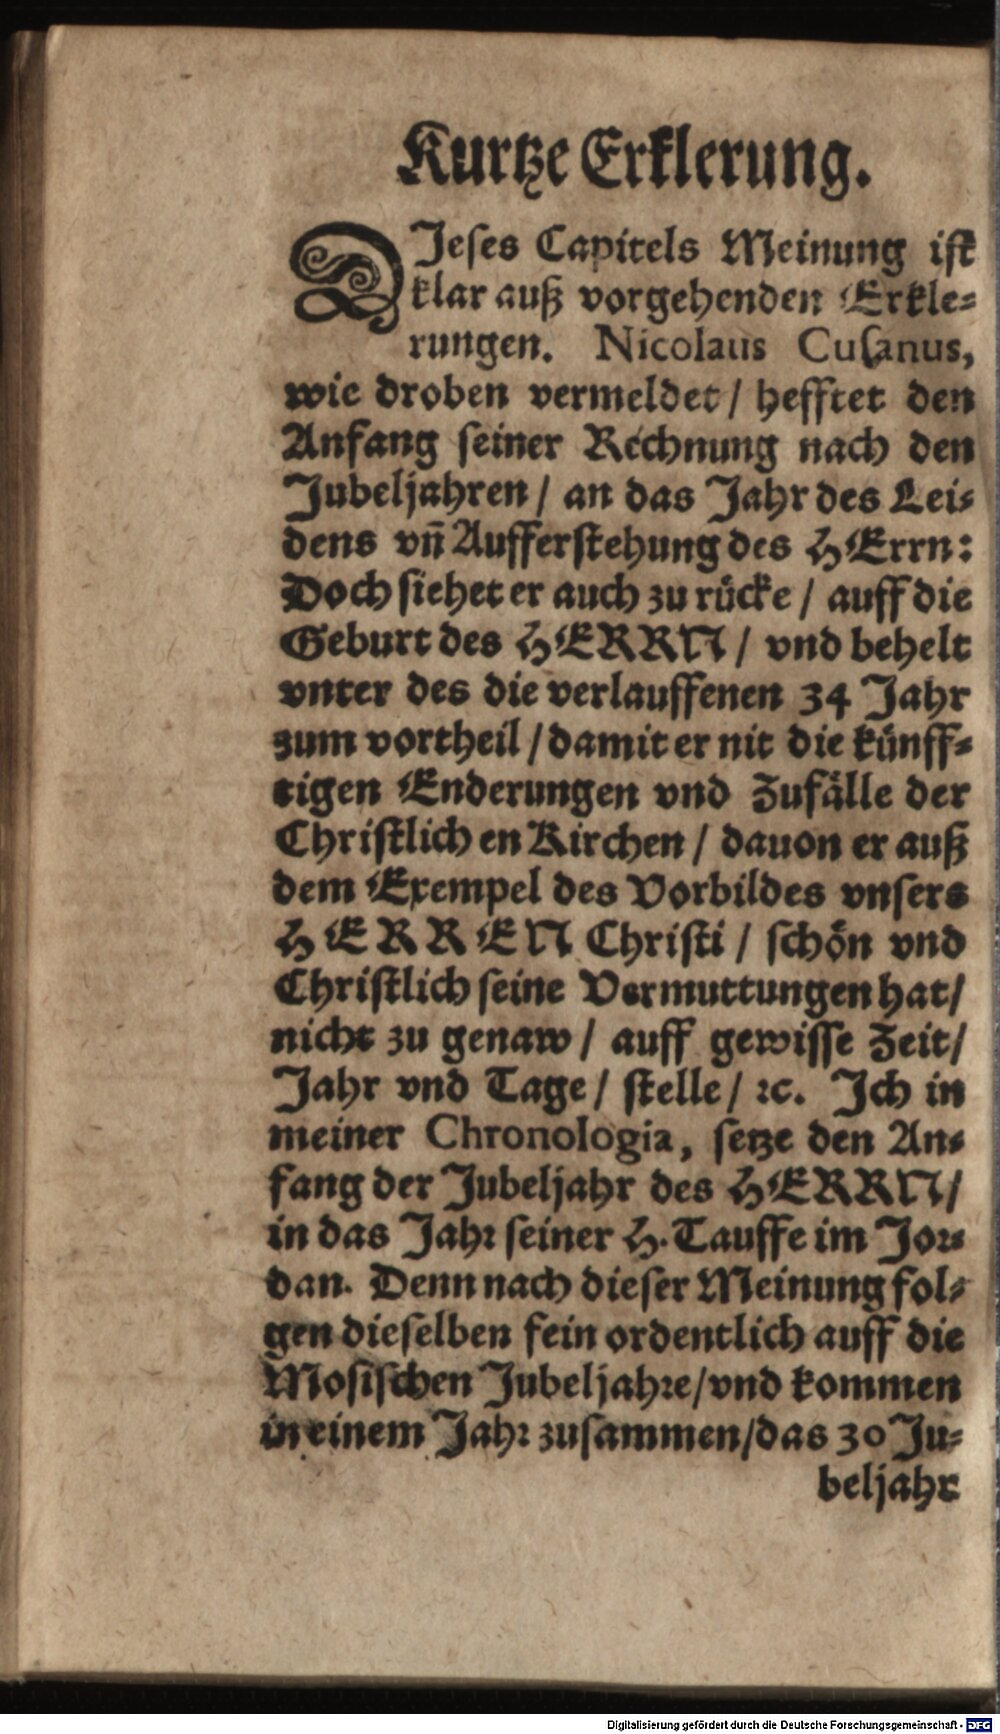 Kurtze Erklerung.
DIeses Capitels Meinung ist
klar auß vorgehenden Erkle⸗
rungen. Nicolaus Cusanus,
wie droben vermeldet / hefftet den
Anfang seiner Rechnung nach den
Jubeljahren / an das Jahr des Lei⸗
dens vñ Aufferstehung des HErrn:
Doch siehet er auch zu rücke / auff die
Geburt des HERRN / vnd behelt
vnter des die verlauffenen 34 Jahr
zum vortheil / damit er nit die künff⸗
tigen Enderungen vnd Zufälle der
Christlich en Kirchen / dauon er auß
dem Exempel des Vorbildes vnsers
HERREN Christi / schön vnd
Christlich seine Vermuttungen hat /
nicht zu genaw / auff gewisse Zeit /
Jahr vnd Tage / stelle / ꝛc. Ich in
meiner Chronologia, setze den An⸗
fang der Jubeljahr des HERRN /
in das Jahr seiner H. Tauffe im Jor⸗
dan. Denn nach dieser Meinung fol⸗
gen dieselben fein ordentlich auff die
Mosischen Jubeljahre / vnd kommen
in einem Jahr zusammen / das 30 Ju⸗
beljahr
Digitalisierung gefördert durch die Deutsche Forschungsgemeinschaft - DFG